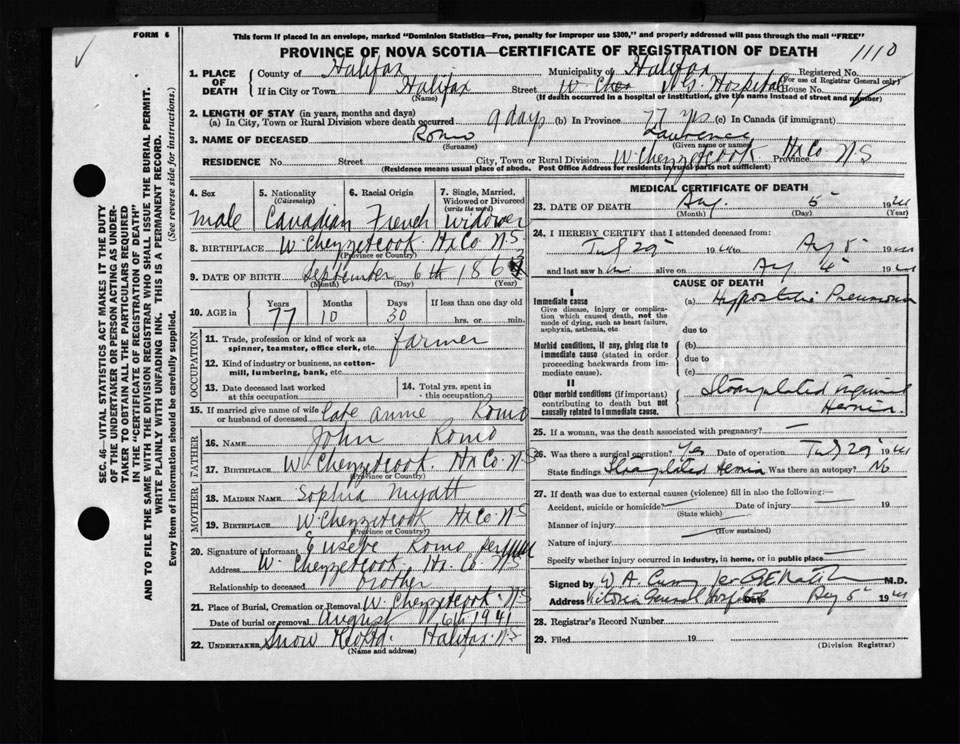 FORM 6
This form if placed in an envelope, marked "Dominion Statistics—Free, penalty for improper use $300," and properly addressed will pass through the mail "FREE"
PROVINCE OF NOVA SCOTIA—CERTIFICATE OF REGISTRATION OF DEATH
1110
1. PLACE OF DEATH
County of Halifax Municipality of Halifax Registered No.
(For use of Registrar General only)
If in City or Town Halifax Street Hospital House No.
(Name) (If death occurred in a hospital or institution, give the name instead of street and number)
2. LENGTH OF STAY (in years, months and days)
(a) In City, Town or Rural Division where death occurred 9 days (b) In Province 77 yrs (c) In Canada (if immigrant)
3. NAME OF DECEASED Romo Lawrence
(Surname) (Given name or names)
RESIDENCE No. Street City, Town or Rural Division W. Chezzetcook Hx Co. Province N S
(Residence means usual place of abode. Post Office Address for residents in rural parts not sufficient)
4. Sex 5. Nationality (Citizenship) 6. Racial Origin 7. Single, Married, Widowed or Divorced (write the word)
Male Canadian French Widower
8. BIRTHPLACE W. Chezzetcook. Hx Co. N S
(Province or Country)
9. DATE OF BIRTH September 6th 1863
(Month) (Day) (Year)
10. AGE in Years Months Days If less than one day old
77 10 30 hrs. or min.
OCCUPATION
11. Trade, profession or kind of work as spinner, teamster, office clerk, etc. farmer
12. Kind of industry or business, as cotton-mill, lumbering, bank, etc.
13. Date deceased last worked at this occupation
14. Total yrs. spent in this occupation
15. If married give name of wife or husband of deceased Annie Romo
FATHER
16. NAME John Romo
17. BIRTHPLACE W. Chezzetcook. Hx Co. N S
(Province or Country)
MOTHER
18. MAIDEN NAME Sophia Myatt
19. BIRTHPLACE W. Chezzetcook Hx Co. N S
(Province or Country)
20. Signature of informant Euseve Romo per
Address W. Chezzetcook, Hx. Co. N S
Relationship to deceased brother
21. Place of Burial, Cremation or Removal W. Chezzetcook. N S
Date of burial or removal August 6th 1941
22. UNDERTAKER Snow Halifax. N S
(Name and address)
MEDICAL CERTIFICATE OF DEATH
23. DATE OF DEATH Aug. 5 1941
(Month) (Day) (Year)
24. I HEREBY CERTIFY that I attended deceased from:
29 1941 to Aug 5 1941
and last saw him alive on Aug 4 1941
CAUSE OF DEATH
I
Immediate cause
Give disease, injury or complication which caused death, not the mode of dying, such as heart failure, asphyxia, asthenia, etc
(a) Hypostatic Pneumonia
due to
Morbid conditions, if any, giving rise to immediate cause (stated in order proceeding backwards from immediate cause).
(b)
due to
(c)
II
Other morbid conditions (if important) contributing to death but not causally related to immediate cause.
Strangulated inguinal Hernia.
25. If a woman, was the death associated with pregnancy? —
26. Was there a surgical operation? Yes Date of operation 29 1941
State findings Strangulated Hernia Was there an autopsy? No
27. If death was due to external causes (violence) fill in also the following:—
Accident, suicide or homicide? Date of injury 19
(State which)
Manner of injury
(How sustained)
Nature of injury
Specify whether injury occurred in industry, in home, or in public place
Signed by M.D.
Address Victoria General Hospital Date Aug 5 1941
28. Registrar's Record Number
29. Filed 19
(Division Registrar)
SEC. 46—VITAL STATISTICS ACT MAKES IT THE DUTY
OF THE UNDERTAKER OR PERSON ACTING AS UNDERTAKER TO OBTAIN ALL THE PARTICULARS REQUIRED
IN THE "CERTIFICATE OF REGISTRATION OF DEATH"
AND TO FILE THE SAME WITH THE DIVISION REGISTRAR WHO SHALL ISSUE THE BURIAL PERMIT.
WRITE PLAINLY WITH UNFADING INK. THIS IS A PERMANENT RECORD.
Every item of information should be carefully supplied. (See reverse side for instructions.)